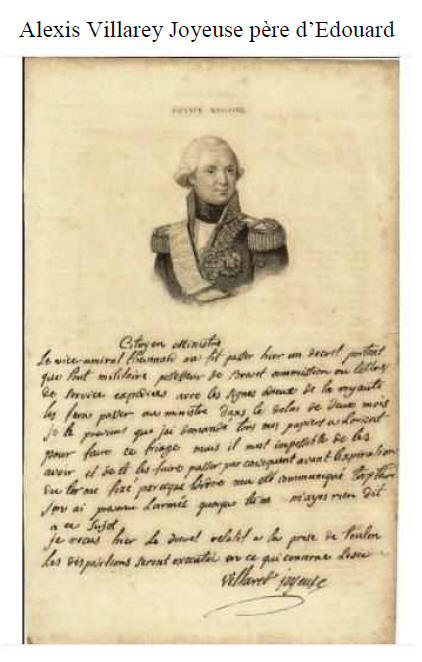 Alexis Villarey Joyeuse père d'Edouard
FRANCE MILITAIRE
Citoyen Ministre
Le vice-amiral Thevenard ma fit passer hier un decret portant
que tout militaire possesseur de Brevet commission ou lettres
de service expediées avec les signes de la royauté
les feras passer au ministre dans le delai de deux mois
je te previens que j'ai demandé tous mes papiers a Lorient
pour faire ce triage mais il m'est impossible de les
avoir et de te les faire passer par consequent avant l'expiration
du terme fixé parceque l'ordre ne communiqué
l'armée quoique tu m'ayes rien dit
a ce Sujet
je recus hier le decret relatif a la prise de toulon
Les dispositions seront executées en ce qui concerne
Villaret joyeuse